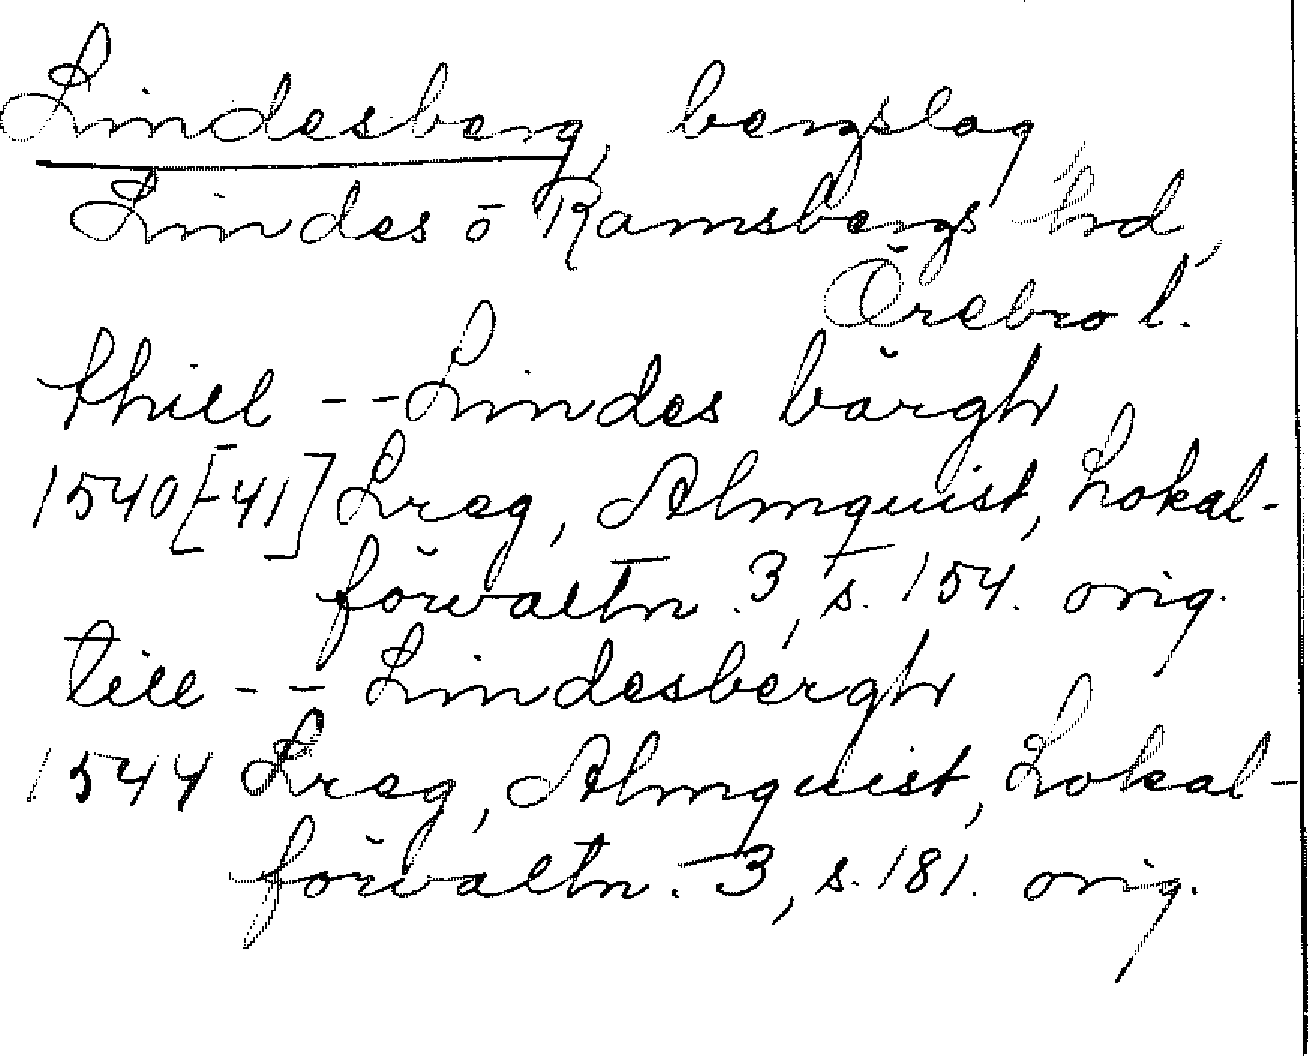 Lindesberg, bergslag
Lindes o Ramsbergs hd,
Örebro l.
thill -- Lindes bärgh
1540[-41] Lreg, Almquist, Lokal-
förvaltn. 3, s. 154. orig.
till -- Lindesbergh
1544 Lreg, Almquist, Lokal-
förvaltn. 3, s. 181. orig.